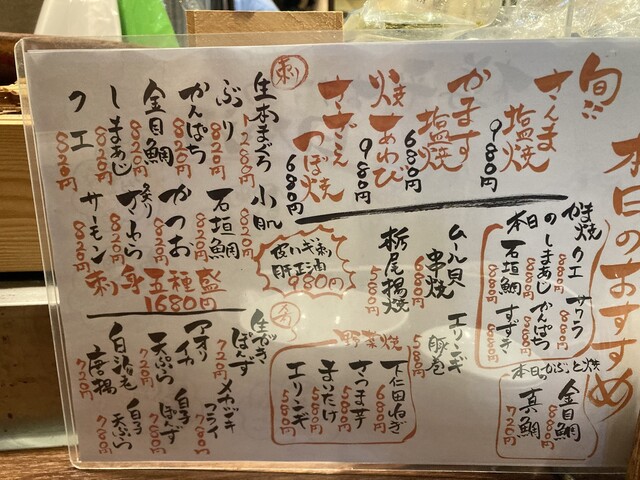 本日のおすすめ
旬!!
さんま塩焼
980円
かます塩焼
680円
焼あわび
980円
さざえつぼ焼
680円
かま焼
本日の
クエ 880円
サワラ 880円
しまあじ 880円
かんぱち 880円
石垣鯛 880円
すずき
本日のかぶと焼
金目鯛 880円
真鯛 720円
ムール貝串焼
680円
エリンギ豚巻
580円
栃尾揚焼
580円
野菜焼
下仁田ねぎ 680円
さつま芋 580円
まいたけ 580円
エリンギ 580円
刺
生本まぐろ 1280円
ぶり 820円
かんぱち 820円
金目鯛 820円
しまあじ 820円
クエ 820円
小肌
石垣鯛 820円
かつお 820円
炙りさわら 820円
サーモン 820円
刺身五種盛
1680円
肝正油
980円
生でき
ぽんず 720円
アオリイカ天ぷら 720円
白海老唐揚 720円
メカジキフライ
白子ぽんず 780円
白子天ぷら 780円